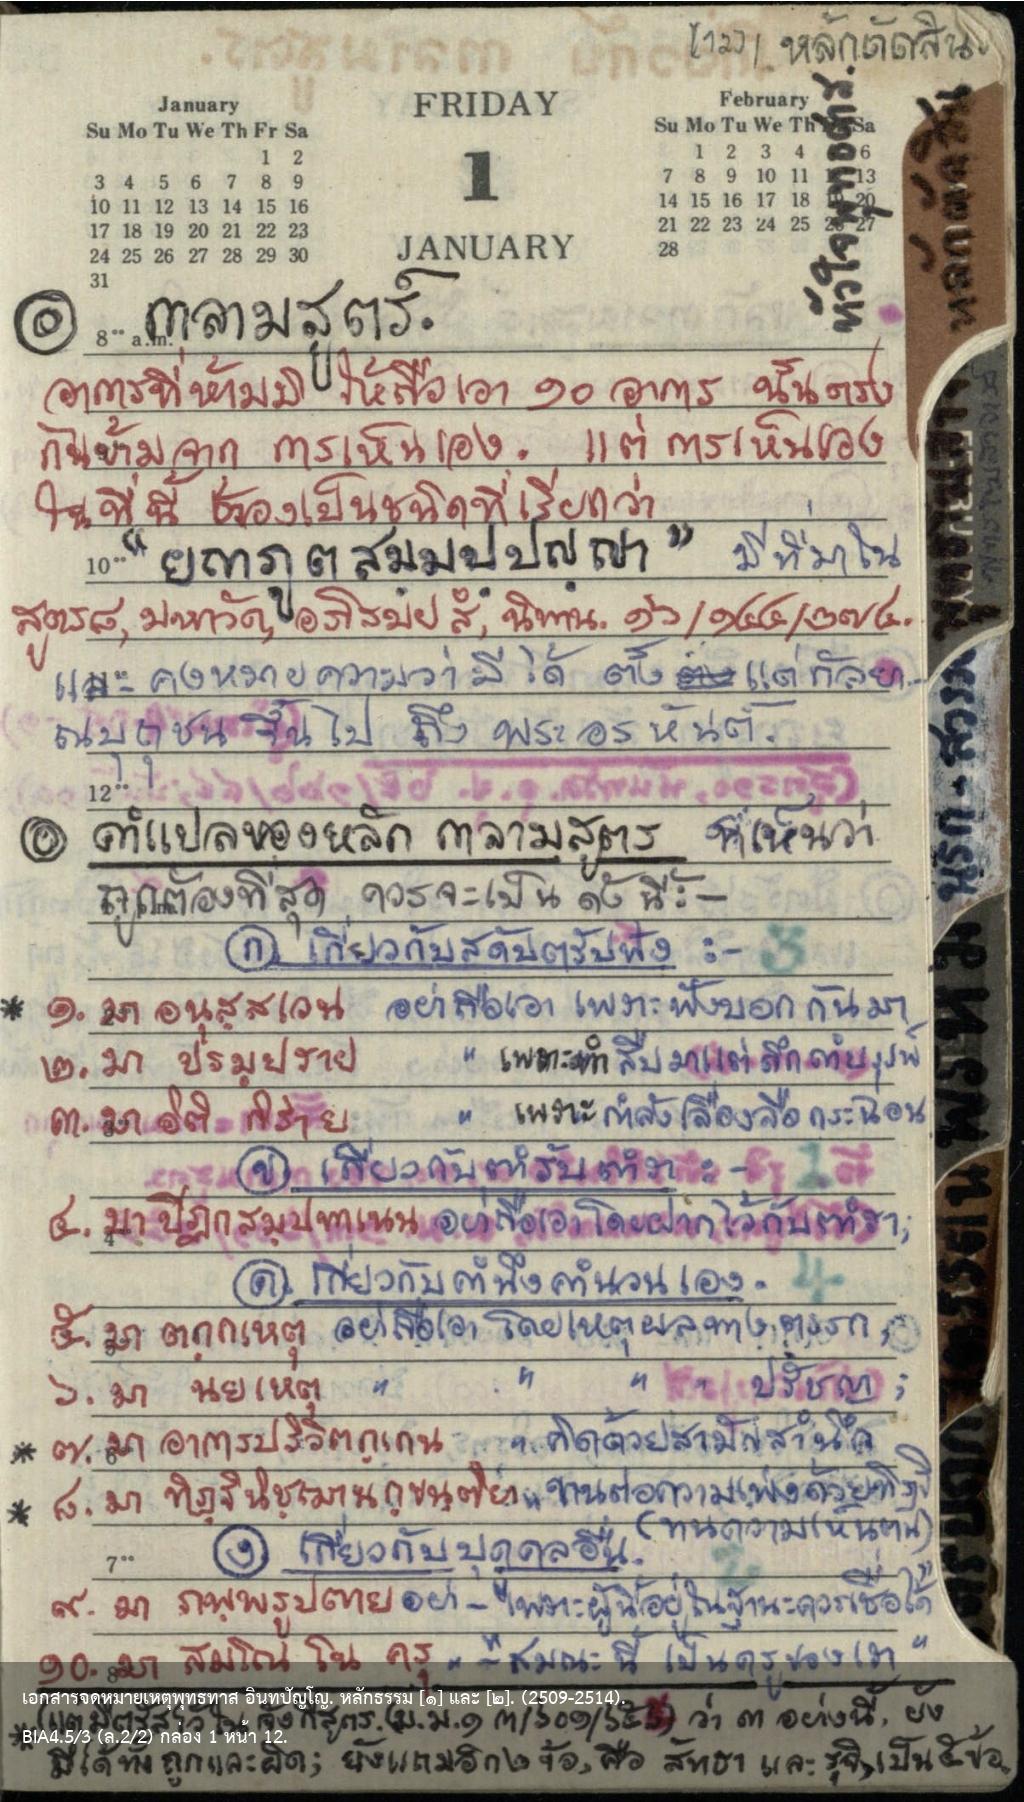 [๖๖] หลักตัดสิน.
January
Su Mo Tu We Th Fr Sa
1 2
3 4 5 6 7 8 9
10 11 12 13 14 15 16
17 18 19 20 21 22 23
24 25 26 27 28 29 30
31
FRIDAY
1
JANUARY
February
Su Mo Tu We Th Sa
1 2 3 4 6
7 8 9 10 11 13
14 15 16 17 18 20
21 22 23 24 25 27
28
หัวใจพุทธศาสตร์.
หลักตัดสิน
8°° a.m.
กลามสูตร์.
อาการที่ห้ามมิให้ถือเอา ๑๐ อาการ นั้นตรง
กันข้ามจาก การเห็นเอง. แต่ การเห็นเอง
ในที่นี้ ต้องเป็นชนิดที่เรียกว่า
10°° "ยถาภูตสมฺมปฺปญฺญา" มีที่มาใน
สูตร๘, มหาวัค, อภิสมย สํ, นิทาน. ๑๖/๑๔๔/๒๗๔.
และ คงหมายความว่ามีได้ ตั้ง แต่กัลยา-
ณบุถุชน ขึ้นไป ถึง พระอรหันต์.
12°°
คำแปลของหลัก กลามสูตร ที่เห็นว่า
ถูกต้องที่สุด ควรจะเป็น ดังนี้:-
(ก) เกี่ยวกับสดับตรับฟัง :- 3
* ๑. มา อนุสฺสเวน อย่าถือเอา เพราะฟังบอกกันมา
๒. มา ปรมฺปราย " เพราะทำสืบมาแต่ดึกดำบรรพ์
๓. มา อิติ กิราย " เพราะกำลังเลื่องลือกระฉ่อน
(ข) เกี่ยวกับตำรับตำรา :- 1
๔. มา ปิฎกสมฺปทาเนน อย่าถือเอาโดยฝากไว้กับตำรา;
(ค) เกี่ยวกับคำนึงคำนวนเอง. 4
๕. มา ตกฺกเหตุ อย่าถือเอา โดยเหตุผลทางตรรก;
๖. มา นยเหตุ " " " " ปรัชญา;
* ๗. มา อาการปริวิตกฺเกน " คิดด้วยสามัญสำนึก
* ๘. มา ทิฏฺฐินิชฺฌานกฺขนฺติยา " ทนต่อความเพ่งด้วยทิฏฐิ
(ทนความเห็นตน)
7°° (ง) เกี่ยวกับบุคคลอื่น. 2
๙. มา ภพฺพรูปตาย อย่า - "เพราะผู้นี้อยู่ในฐานะควรเชื่อได้"
๑๐. มา สมโณ โน ครุ " - "สมณะนี้ เป็นครูของเรา"
เอกสารจดหมายเหตุพุทธทาส อินทปัญโญ. หลักธรรม [๑] และ [๒]. (2509-2514).
BIA4.5/3 (ล.2/2) กล่อง 1 หน้า 12.
ว่า ๓ อย่างนี้ ยัง
มีได้ทั้งถูกและผิด; ยังแถมอีก๒ ข้อ, คือ สัทธา และ รุจิ, เป็น ๕ ข้อ.